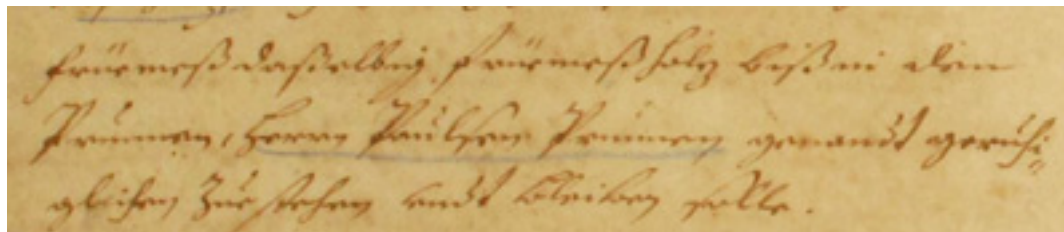 früemeß daßelbig früemeß holz biß in den
Prunnen, Herrn Paulsen Prunnen genandt geruhi-
glichen Zuestehen undt bleiben solle.